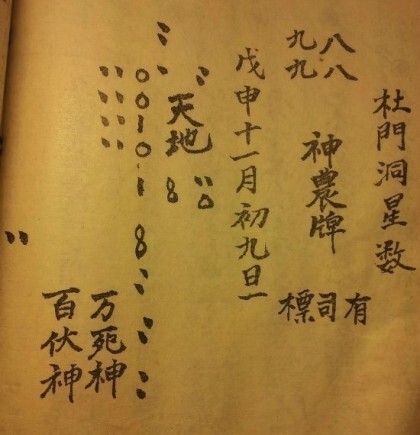 杜門洞星数
八八
九九
神農牌
有司標
戊申十一月初九日一
天地 8
001018
万死神
百伏神